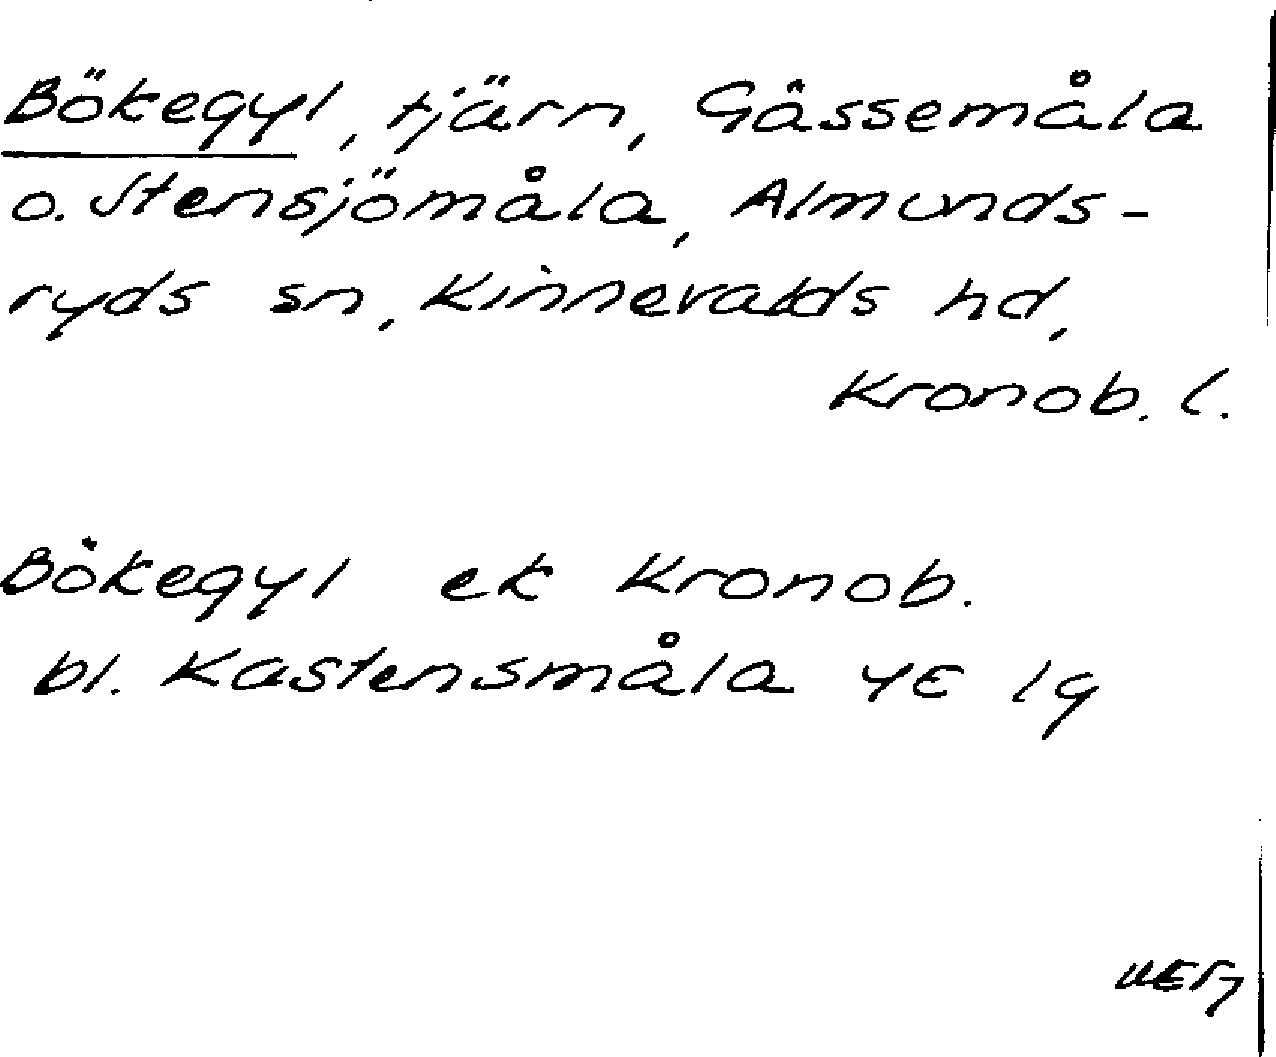 Bökegyl, tjärn, Gåssemåla
o. Stensjömåla, Almunds-
ryds sn, Kinnevalds hd,
Kronob. l.
Bökegyl ek Kronob.
bl. Kastensmåla 4E 1g